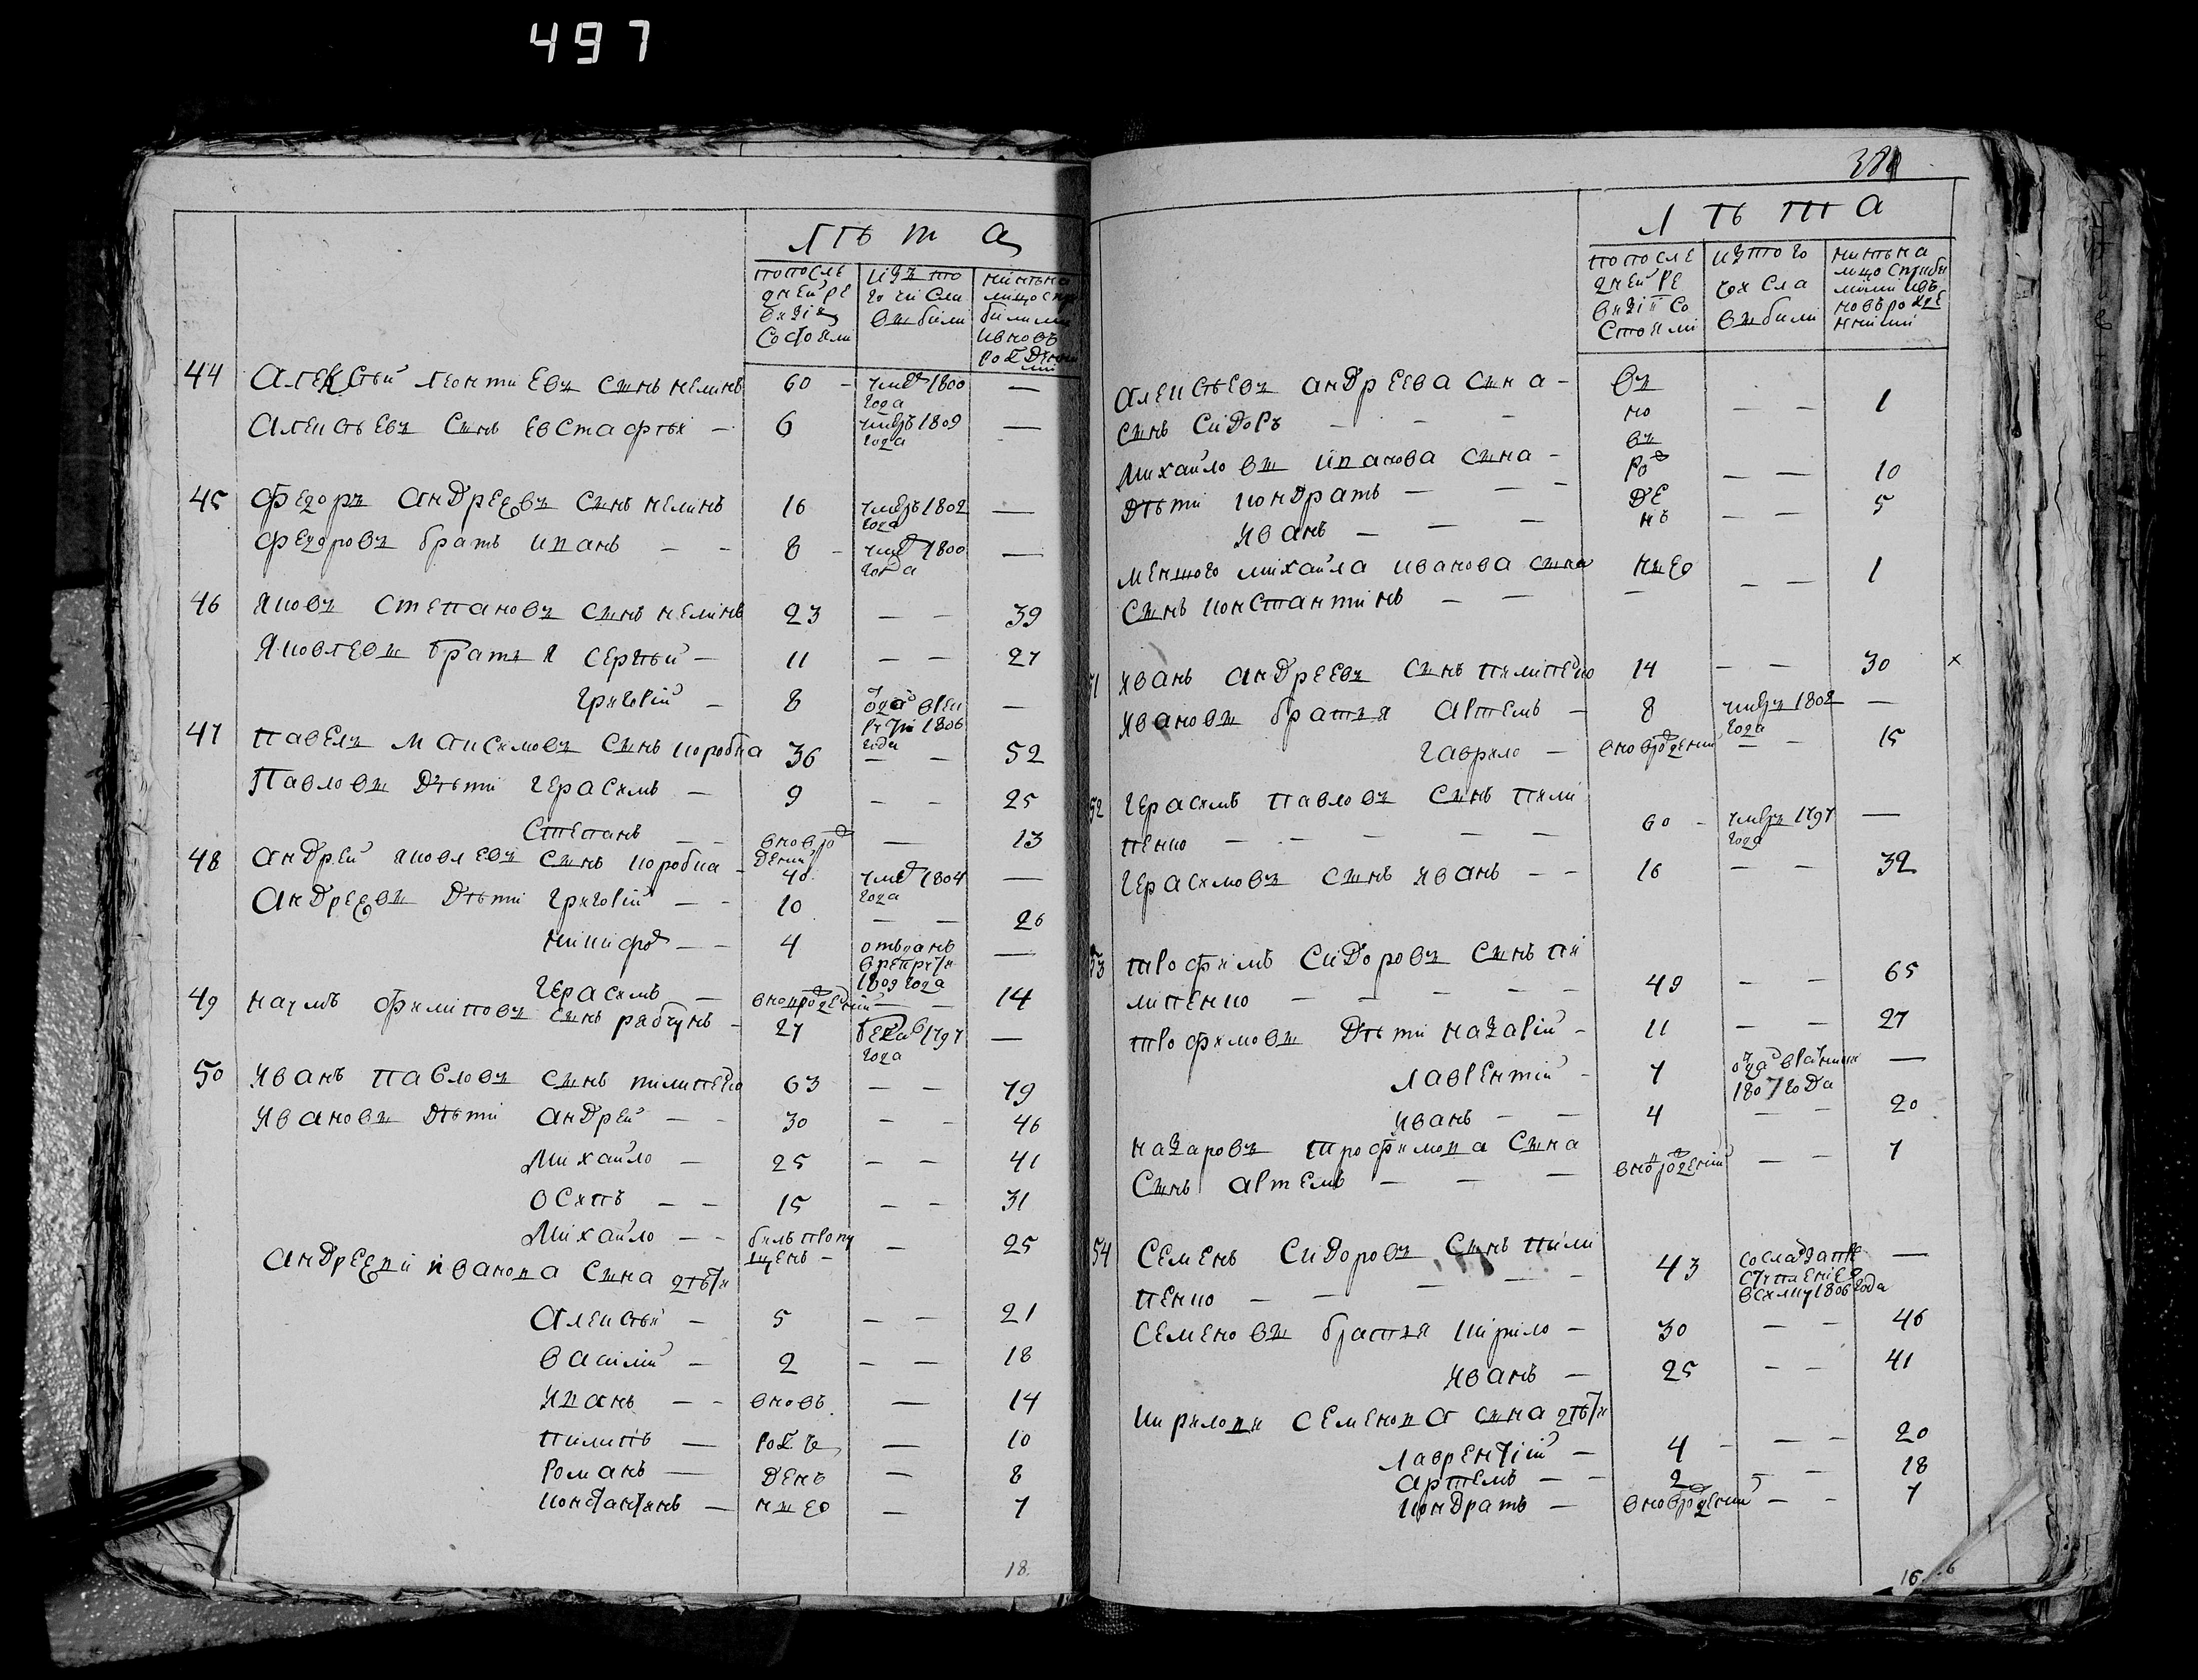 497
Лѣта
попосле
дней ре
визiи
состояли
изъ то
го числа
выбыли
нинѣ на
лицо спри
былими
и вновь
рожденни
ми
44 Алексѣй Леонтиевъ сынъ нелинъ 60 - умер 1800 —
года
Алексѣевъ сынъ Евстафѣи — 6 умеръ 1809 —
года
45 Федоръ Андреевъ сынъ нелинъ 16 умеръ 1802 —
года
Федоровъ братъ иванъ — — 8 - умер 1800 —
года
46 Яковъ Степановъ сынъ нелинъ 23 — — 39
Яковлевы братья Сергѣй — 11 — — 27
Григорiй — 8 —
рекруты 1806
года
47 Павелъ Максимовъ сынъ коробка 36 — — 52
Павловы дѣти Герасимъ — 9 - - 25
Степанъ — — вновьро — 13
дений
48 Андрей яковлевъ сынъ коробка - 40 умер 1804 —
года
Андреевы дѣти Григорiй — - 10 — — 26
никифор — - 4 отъданъ —
врекруты
1809 года
Герасимъ — вновьрожденiй — — 14
49 Наумъ Филиповъ сынъ рябчунъ - 27 бежа 1797 —
года
50 Иванъ Павловъ сынъ пилипенко 63 — — 79
Ивановы дѣти Андрей — - 30 - - 46
Михайло — 25 - - 41
Осипъ — - 15 - - 31
Михайло — - билъ пропу — 25
щенъ -
Андрееви иванова сына дѣти
Алексѣй — 5 — — 21
Василий — 2 — — 18
Иванъ — - вновь — 14
Пилипъ — рож — 10
Романъ — денъ — 8
Константинъ — ныхъ — 7
18
384
Лѣта
попосле
дней ре
визiи со
стояли
изтого
числа
выбыли
нинѣна
лицо сприбы
лими изъ
новьрожде
нними
Алексѣевъ андреева сына - въ
сынъ Сидоръ - - - но — — 1
Михайловы иванова сына - въ
ро
дѣти кондратъ — — - — — 10
де
Иванъ — — — нъ — — 5
меншого михайла иванова сына
сынъ константинъ — — — — — 1
51 Иванъ Андреевъ сынъ пилипенко 14 — — 30 х
Ивановы братья Артемъ — 8 умеръ 1802 —
года
Гаврило — вновьрожденний — - 15
52 Герасимъ Павловъ сынъ пили
пенко — — — — — 60 - умеръ 1797 —
года
Герасимовъ сынъ Иванъ — - 16 — — 32
53 Трофимъ Сидоровъ сынъ пи
липенко — — — — — 49 — — 65
Трофимовы дѣти Назарiй - 11 — — 27
Лаврентiй - 7 —
1807 года
Иванъ — — 4 — — 20
Назаровъ трофимова сына
сынъ артемъ — — — вновьрожденiй — — 7
54 Семенъ Сидоровъ сынъ пили
пенко — — — — — 43 —
1806 года
Семеновы братья кирило — 30 — — 46
Иванъ — 25 - — 41
Кирилови семенова сына дѣти
Лаврентiй — 4 - — — 20
Артемъ — - 2 - — 18
Кондратъ — вновьрожденiй — - 7
16